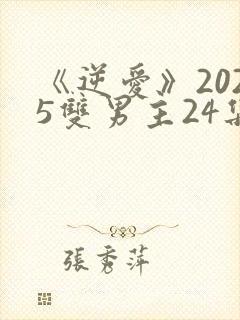 《逆愛》202
5雙男主24集
張秀萍